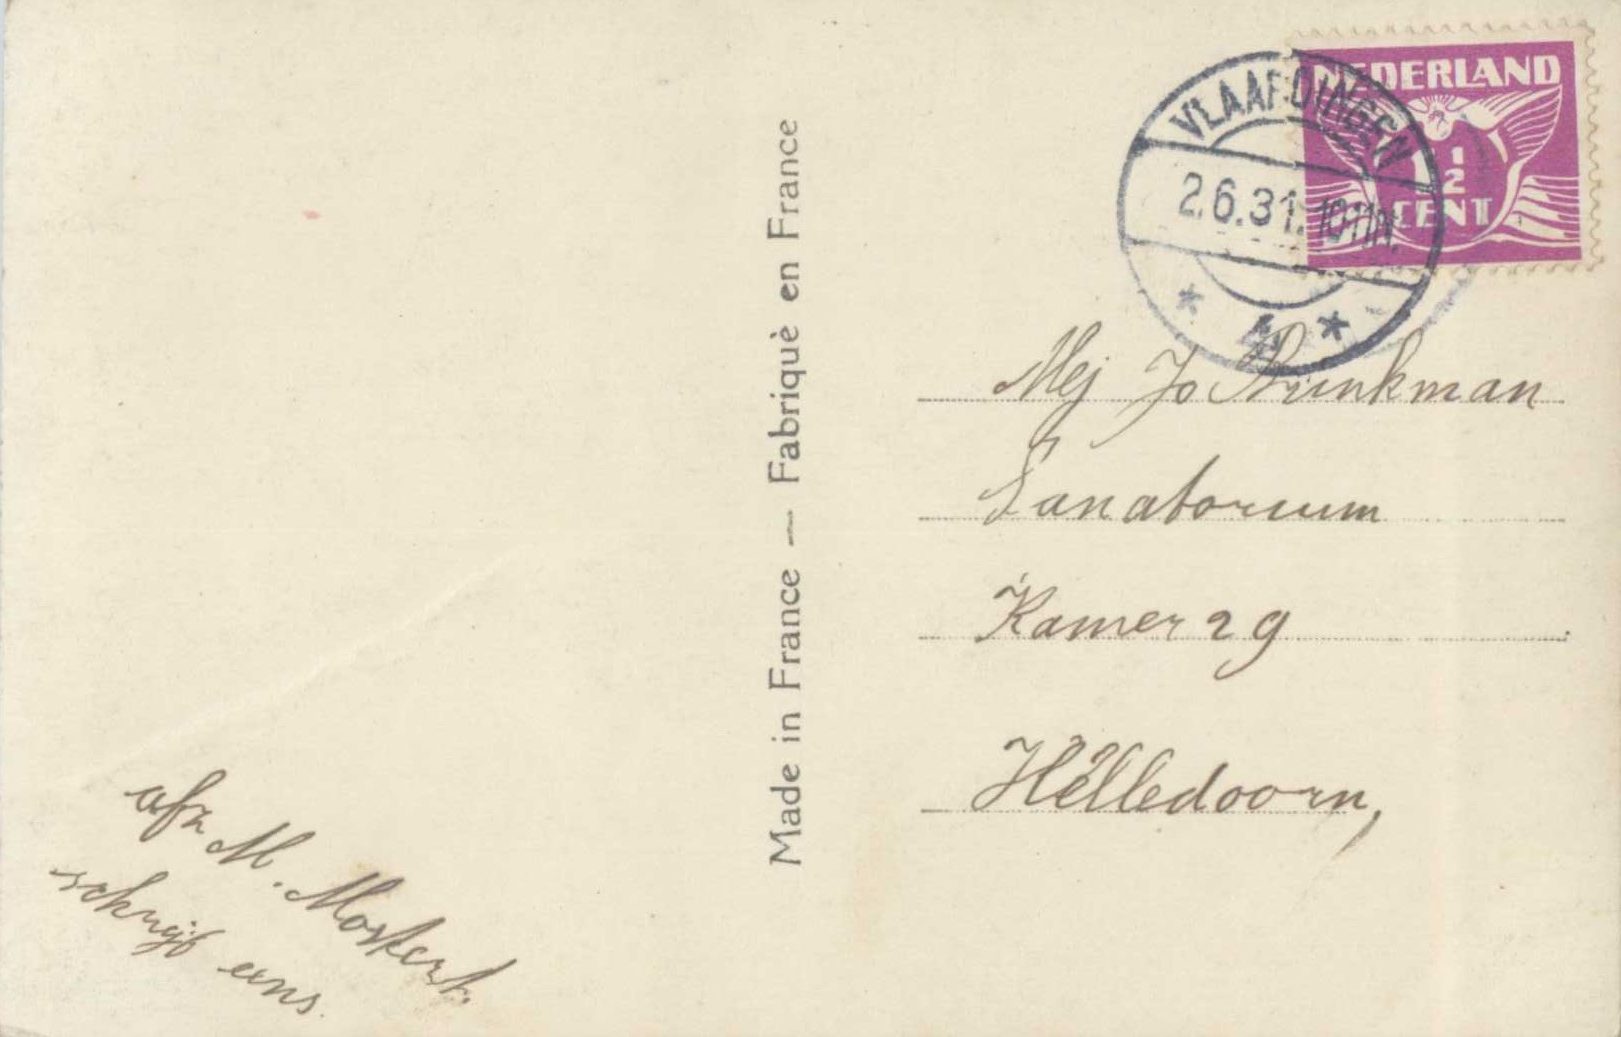 NEDERLAND
1½
CENT
VLAARDINGEN
2.6.31. 10-11N.
* 4 *
Made in France — Fabriquè en France
Mej Jo Brinkman
Sanatorium
Kamer 29
Helledoorn,
afz M. Mostert.
schrijf eens.